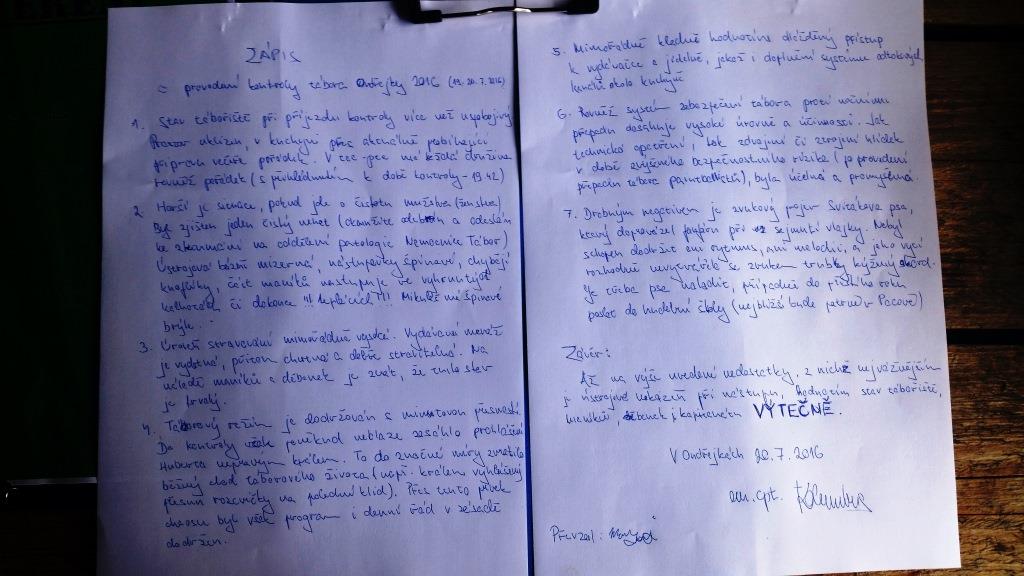 ZÁPIS
o provedení kontroly tábora Ondřejky 2016 (19.-20.7.2016)
1. Stav tábořiště při příjezdu kontroly více než uspokojivý.
Prostor uklizen, v kuchyni přes aktuálně probíhající
přípravu večeře pořádek. V tee-pee
rovněž pořádek (s přihlédnutím k době kontroly - 19.42)
2. Horší je situace, pokud jde o čistotu mužstva (ženstva).
Byl zjištěn jeden čistý nehet (okamžitě odebrán a odeslán
ke zkoumání na oddělení patologie Nemocnice Tábor)
Ústrojová kázeň mizerná, nášupníčky špinavé, chybějí
knoflíky, část maníků nastupuje ve vyhrnutých
kalhotách či dokonce !!! teplácích !!! Mikuláš má špinavé
brýle.
3. Úroveň stravování mimořádně vysoká. Vydávaná menáž
je vydatná, přitom chutná a dobře stravitelná. Na
náladě maníků a děbenek je znát, že tento stav
je trvalý.
4. Táborový režim je dodržován s minutovou přesností.
Do kontroly však poněkud neblaze zasáhlo prohlášení
Huberta nepravým králem. To do značné míry zmátlo
běžný chod táborového života (např. králem vyhlášený
přesun rozcvičky na polední klid). Přes tento prvek
chaosu byl však program i denní řád v zásadě
dodržen.
5. Mimořádně kladně hodnotíme dlážděný přístup
k vydávačce a jídelně, jakož i doplnění systému odtokových
kanálů okolo kuchyně
6. Rovněž systém zabezpečení tábora proti nočnímu
přepadu dosahuje vysoké úrovně a účinnosti. Jak
technická opatření, tak zdvojení či ztrojení hlídek
v době zvýšeného bezpečnostního rizika (po provedení
přepadu tábora paintballistů), byla účelná a promyšlená.
7. Drobným negativem je zvukový projev Sviťákova psa,
který doprovázel fanfáru při snímání vlajky. Nebyl
schopen dodržet ani rytmus, ani melodii, a jeho vytí
rozhodně nevytvářelo se zvukem trubky kýžený akord.
Je třeba psa naladit, případně do příštího roku
poslat do hudební školy (nejbližší bude patrně v Pacově)
Závěr:
Až na výše uvedené nedostatky, z nichž nejvážnějším
je ústrojová nekázeň při nástupu, hodnotím stav tábořiště,
maníků, děbenek i kapitánům VÝTEČNĚ.
V Ondřejkách 20.7.2016
cpt.
Převzal: